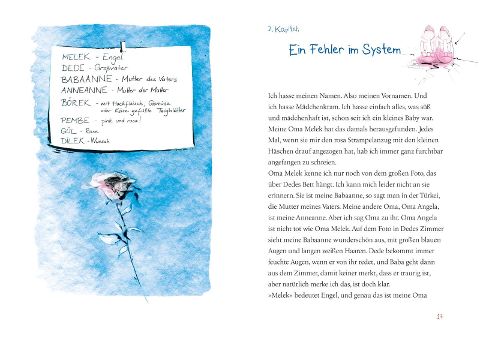 MELEK - Engel
DEDE - Großvater
BABAANNE - Mutter des Vaters
ANNEANNE - Mutter der Mutter
BÖREK - mit Hackfleisch, Gemüse
oder Käse gefüllte Teigblätter
PEMBE - pink und rosa!
GÜL - Rose
DILEK - Wunsch
2. Kapitel
Ein Fehler im System
Ich hasse meinen Namen. Also meinen Vornamen. Und
ich hasse Mädchenkram. Ich hasse einfach alles, was süß
und mädchenhaft ist, schon seit ich ein kleines Baby war.
Meine Oma Melek hat das damals herausgefunden. Jedes
Mal, wenn sie mir den rosa Strampelanzug mit den kleinen
Häschen drauf angezogen hat, hab ich immer ganz furchtbar
angefangen zu schreien.
Oma Melek kenne ich nur noch von dem großen Foto, das
über Dedes Bett hängt. Ich kann mich leider nicht an sie
erinnern. Sie ist meine Babaanne, so sagt man in der Türkei,
die Mutter meines Vaters. Meine andere Oma, Oma Angela,
ist meine Anneanne. Aber ich sag Oma zu ihr. Oma Angela
ist nicht tot wie Oma Melek. Auf dem Foto in Dedes Zimmer
sieht meine Babaanne wunderschön aus, mit großen blauen
Augen und langen weißen Haaren. Dede bekommt immer
feuchte Augen, wenn er von ihr redet, und Baba geht dann
aus dem Zimmer, damit keiner merkt, dass er traurig ist,
aber natürlich merke ich das, ist doch klar.
»Melek« bedeutet Engel, und genau das ist meine Oma